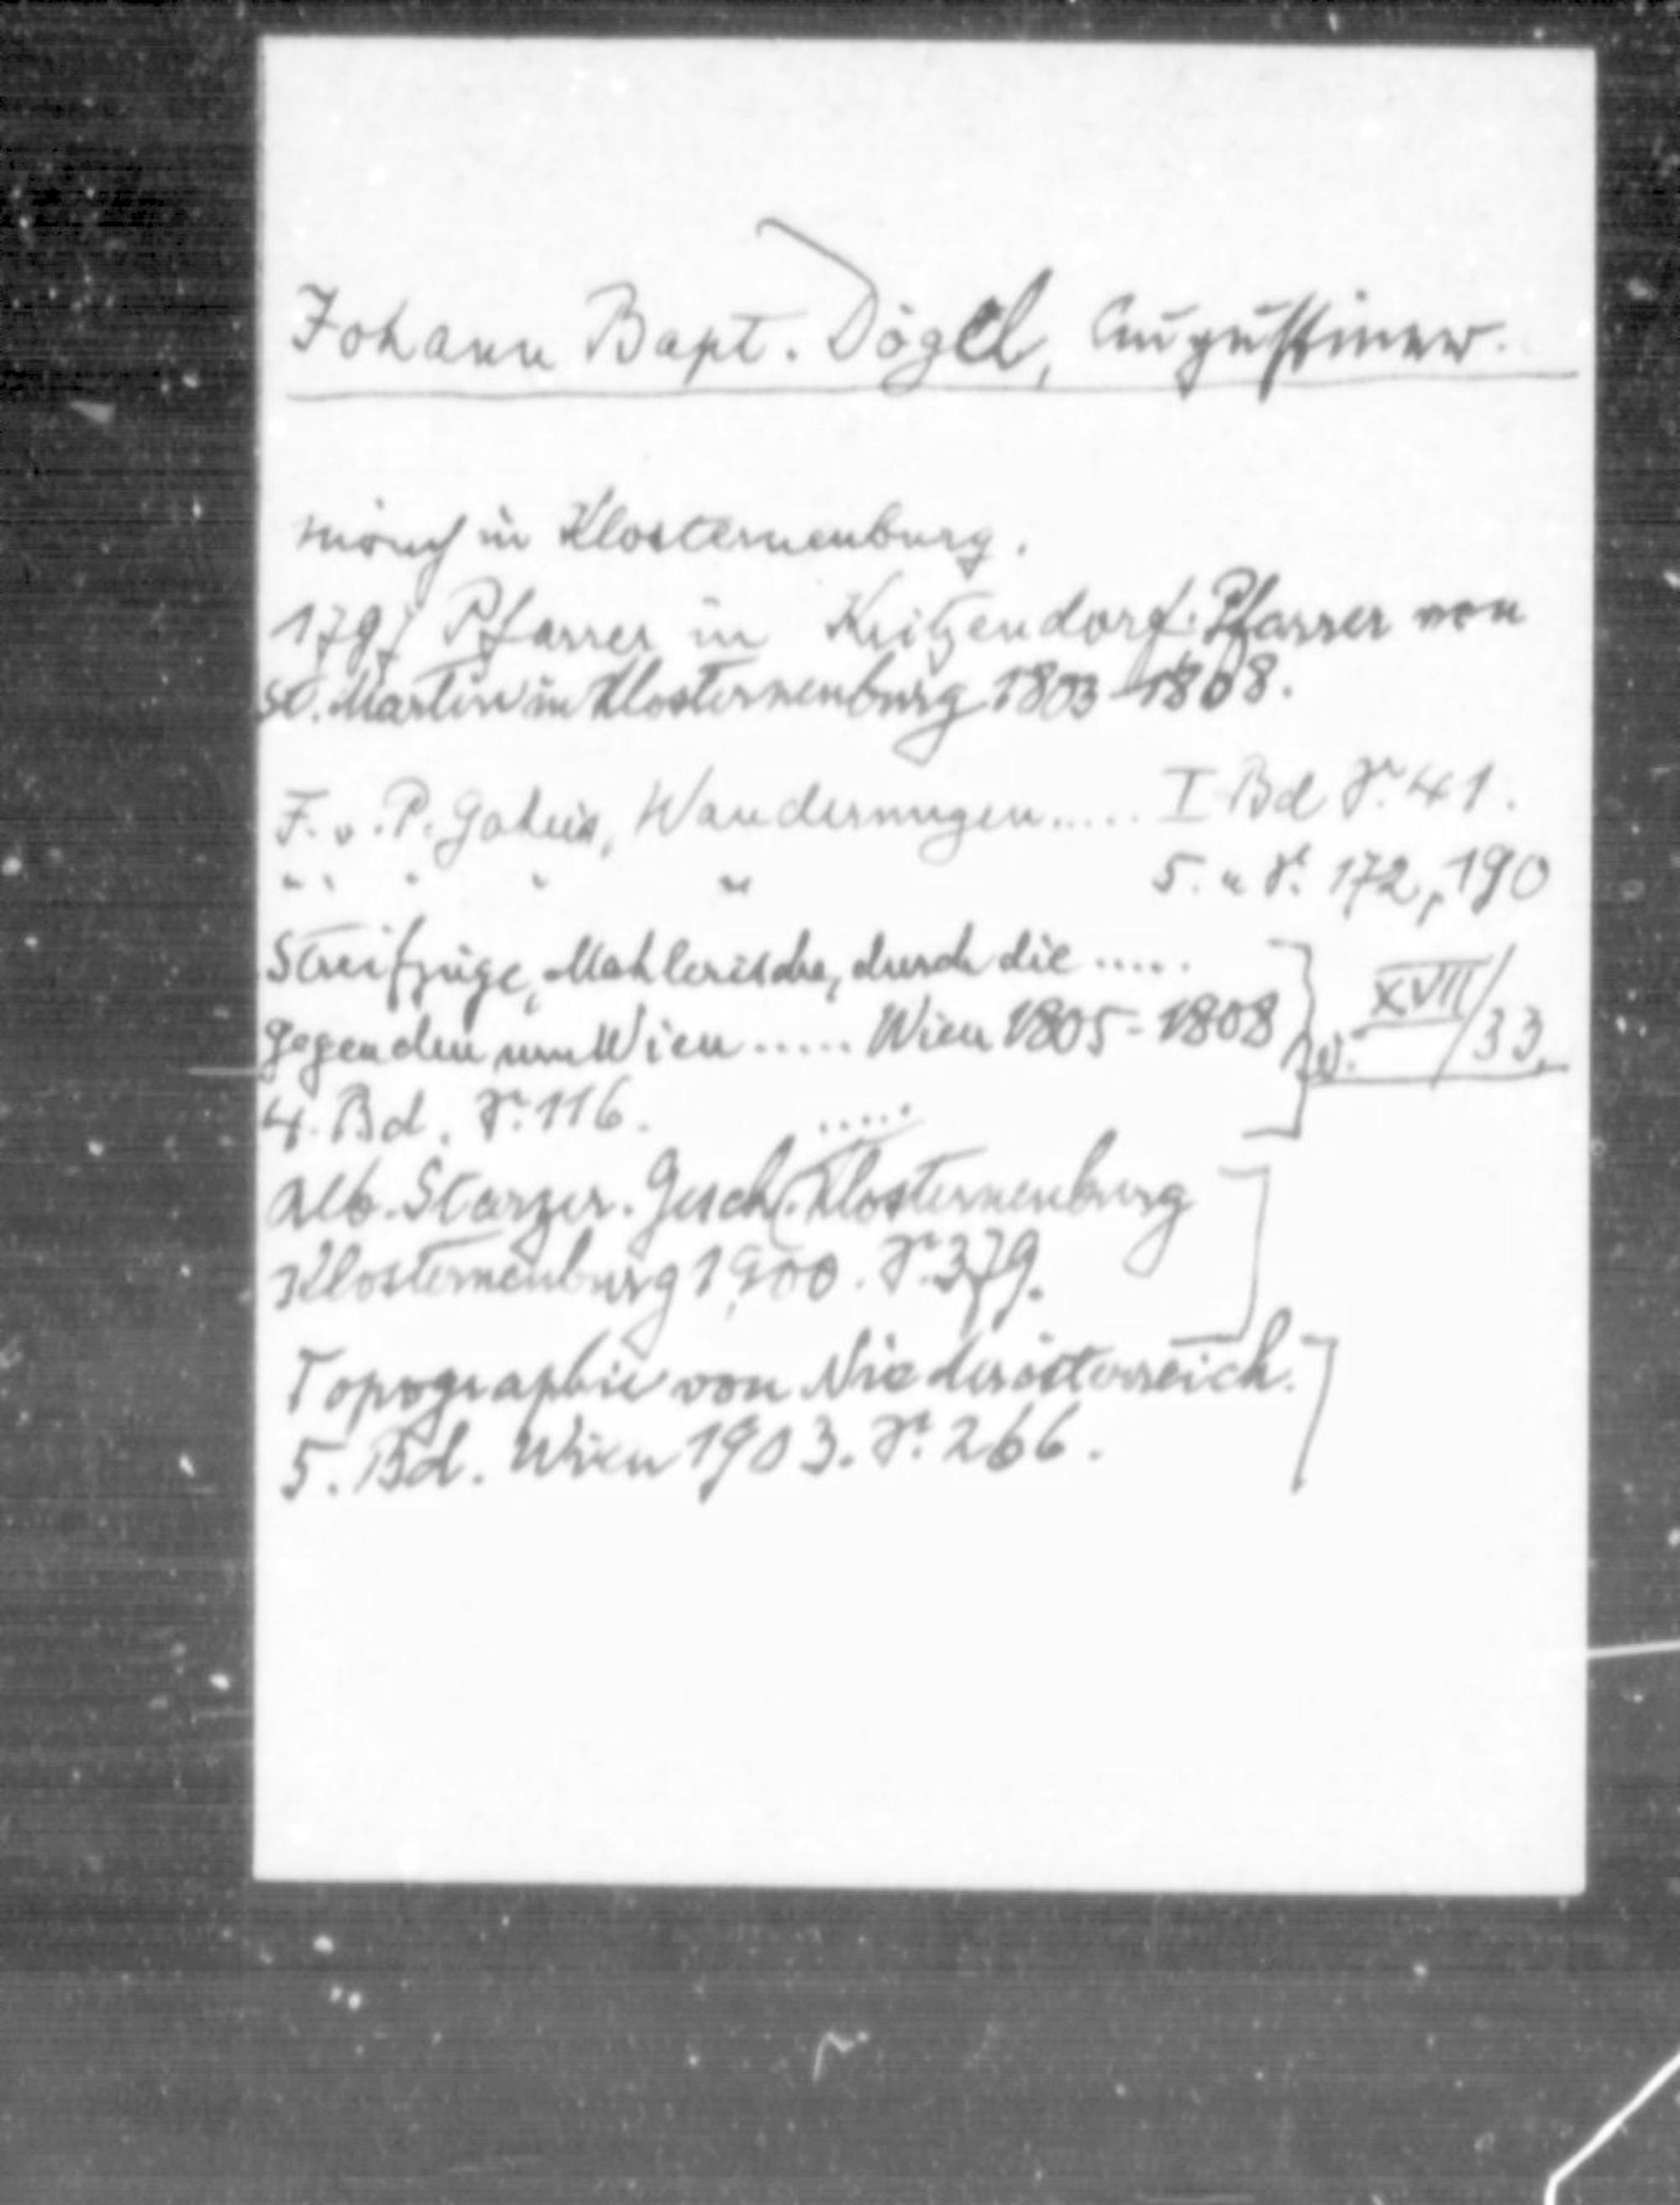 Johann Bapt. Dögel, Augustiner.
mönch in Klosterneuburg.
1797 Pfarrer in Kritzendorf. Pfarrer von
St. Martin in Klosterneuburg 1803-1808.
F. v. P. Gaheis, Wanderungen..... I Bd S. 41.
" " " " " 5. " S. 172, 190
Streifzüge, Mahlerische, durch die .....
Gegenden um Wien ..... Wien 1805-1808 XVII/33.
4. Bd. S. 116. .....
Alb. Starzer. Gesch. Klosterneuburg
Klosterneuburg 1900. S. 379.
Topographie von Niederösterreich.
5. Bd. Wien 1903. S. 266.